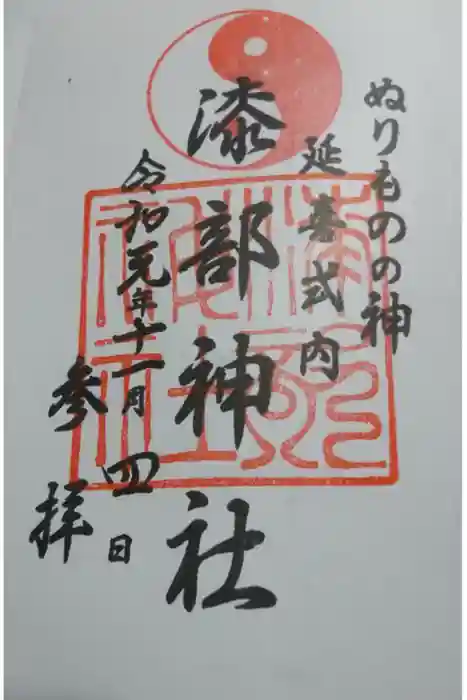 ぬりものの神
延喜式内
漆部神社
令和元年十一月
四日
参拝